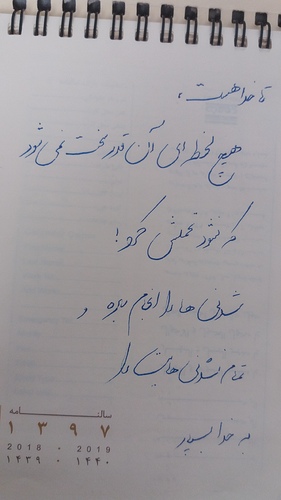 تا خدا هست،
هیچ لحظه ای آن قدر سخت نمی شود
که نشود تحملش کرد!
شدنی ها را انجام بده و
تمام نشدنی هایت را
به خدا بسپار
سالنامه
۱۳۹۷
2018 - 2019
۱۴۳۹ - ۱۴۴۰